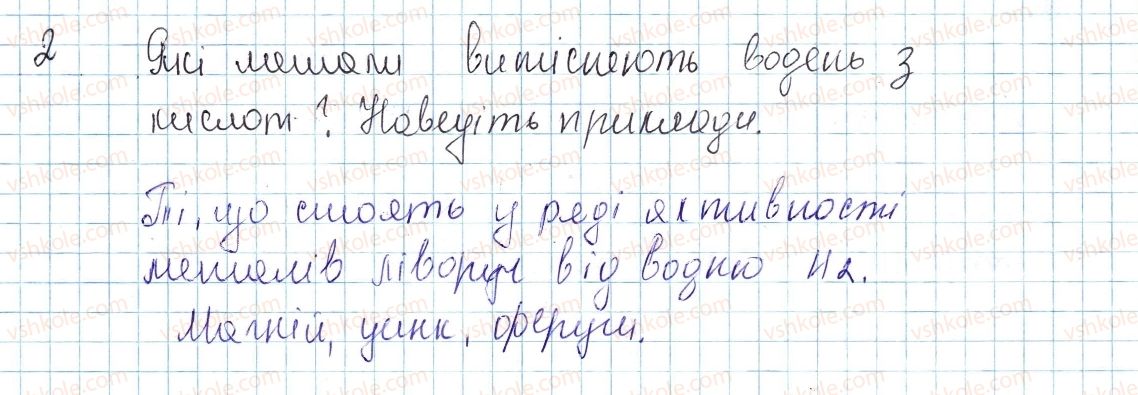 2 Які метали витісняють водень з
кислот? Наведіть приклади.
Ті, що стоять у ряді активності
металів ліворуч від водню H2.
Магній, цинк, ферум.